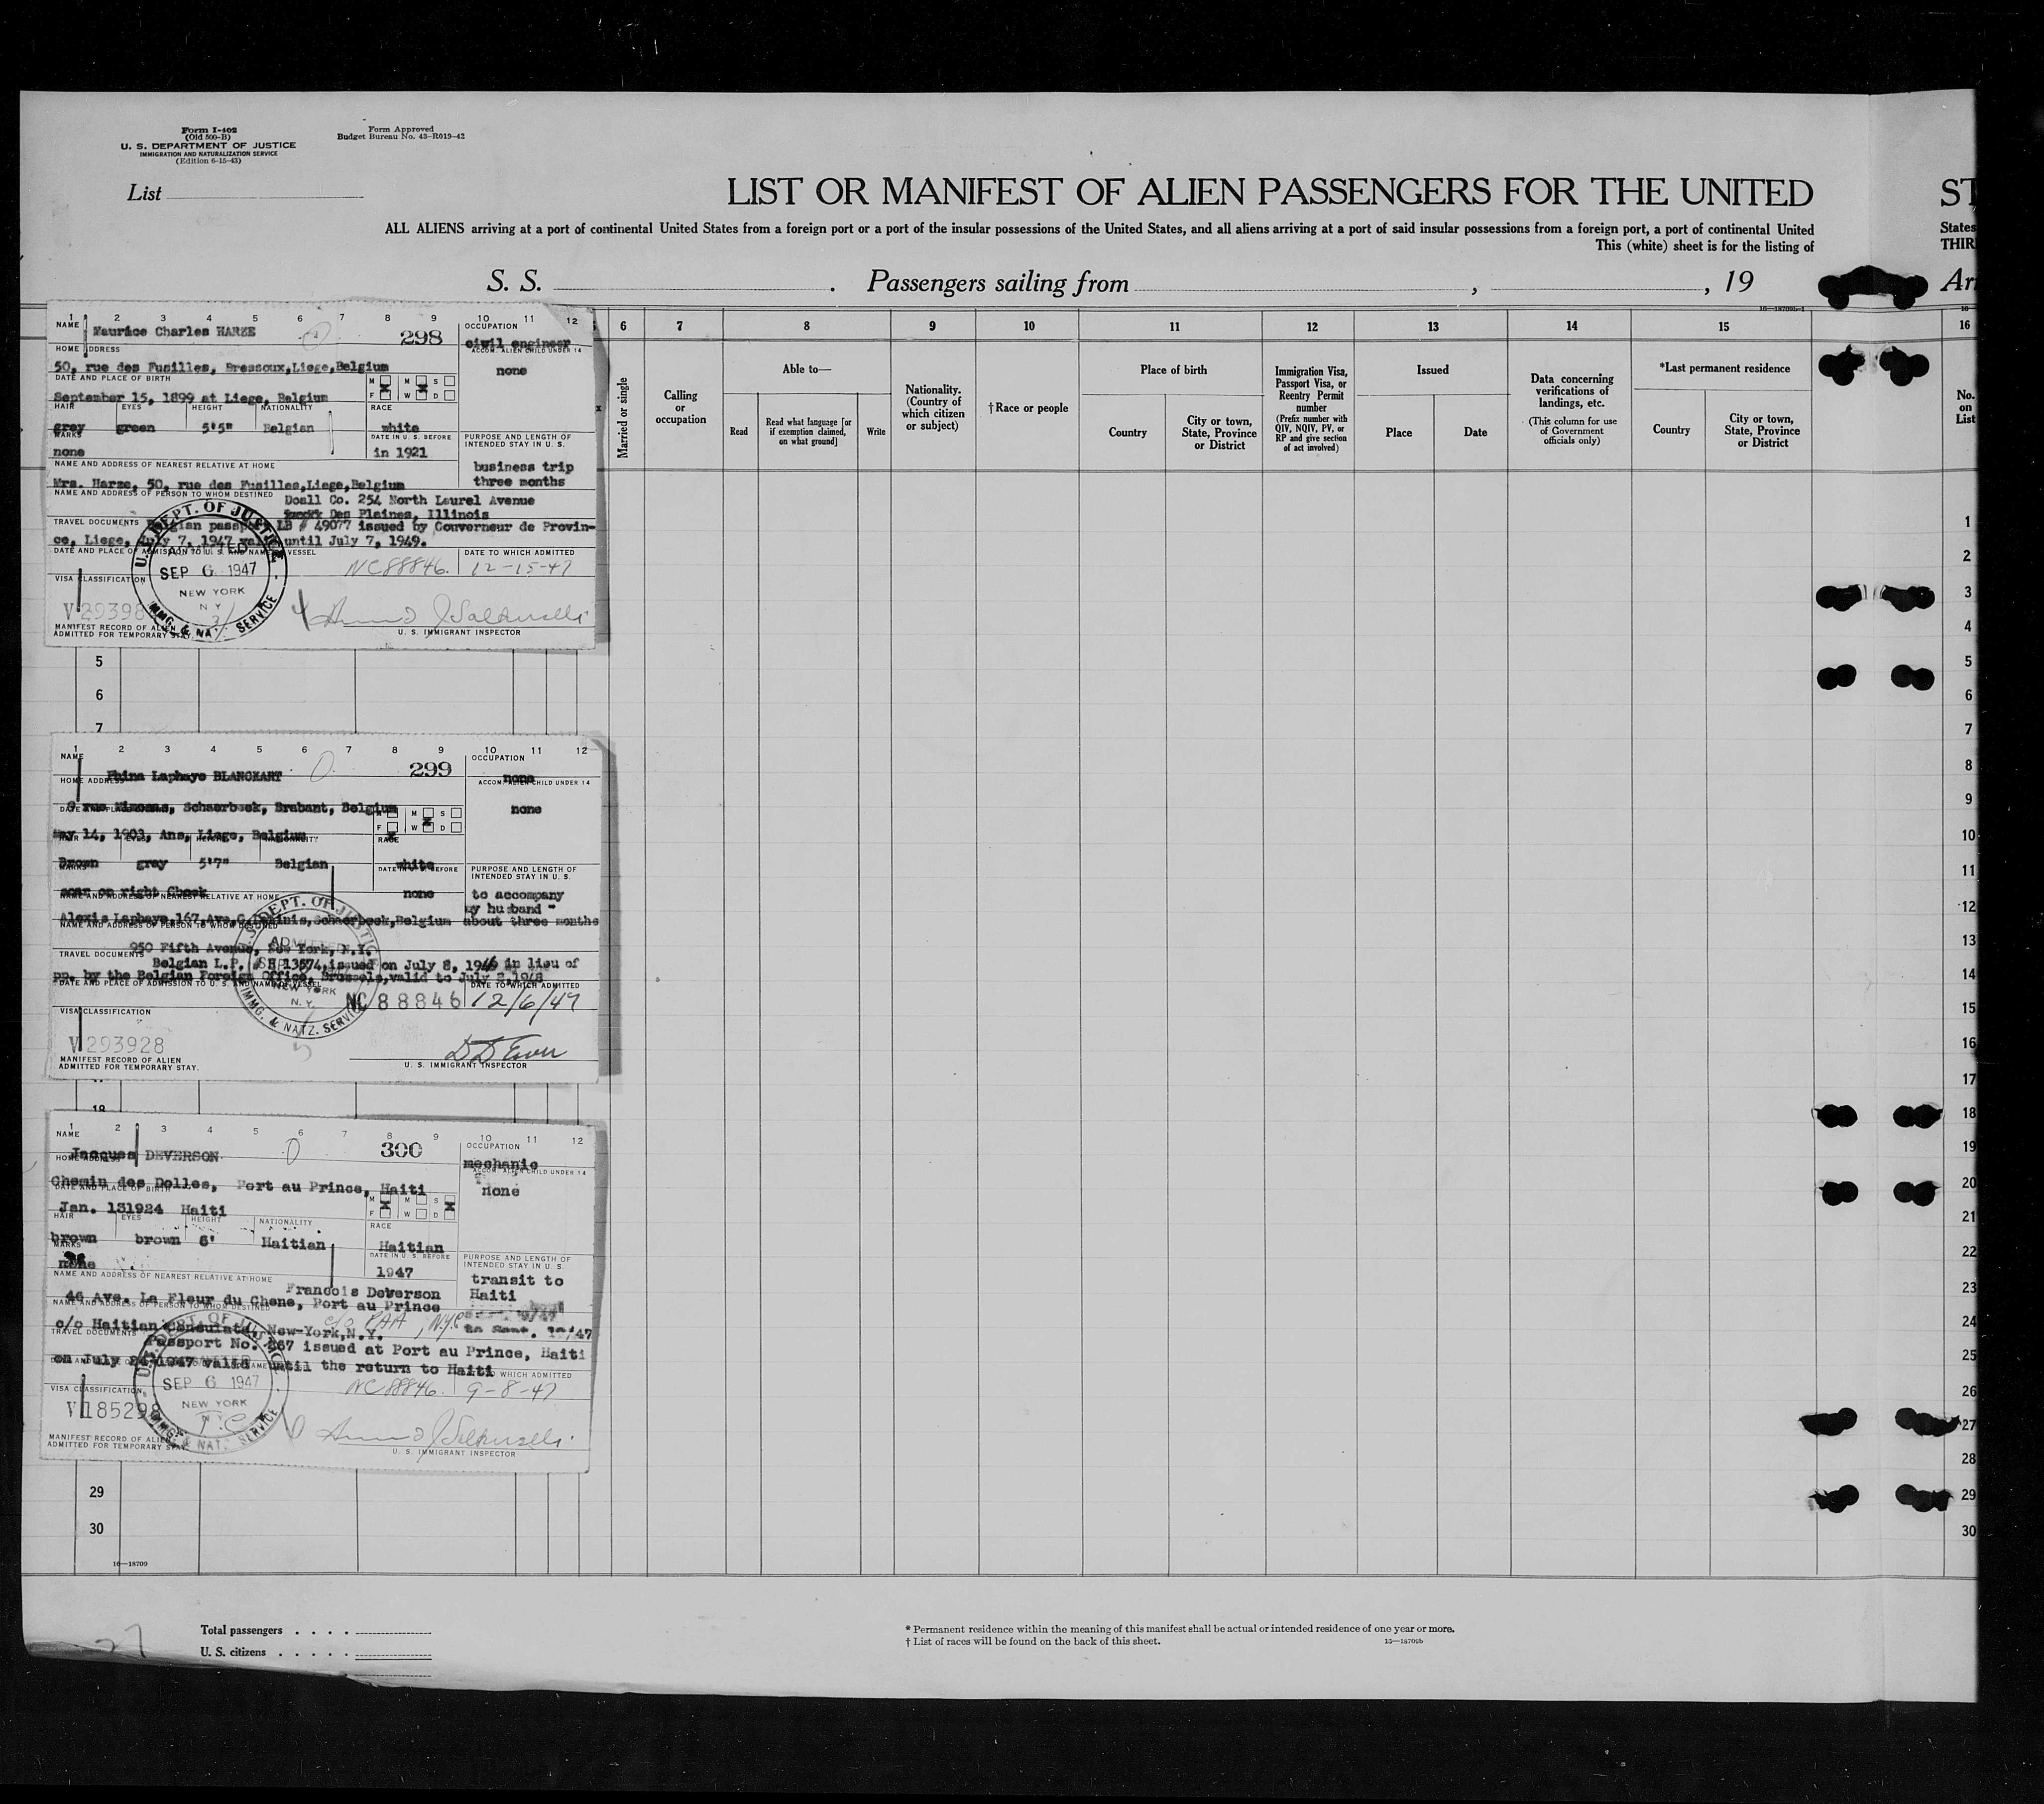 Form I-402
(Old 500-B)
U. S. DEPARTMENT OF JUSTICE
IMMIGRATION AND NATURALIZATION SERVICE
(Edition 6-15-43)
Form Approved
Budget Bureau No. 43-R019-42
List
LIST OR MANIFEST OF ALIEN PASSENGERS FOR THE UNITED
ST
ALL ALIENS arriving at a port of continental United States from a foreign port or a port of the insular possessions of the United States, and all aliens arriving at a port of said insular possessions from a foreign port, a port of continental United
States
This (white) sheet is for the listing of
THIR
S. S. . Passengers sailing from , , 19
Arr
16—18709b-1
1 2 3 4 5 6 7 8 9 10 11 12
NAME Maurice Charles HARZE 298
OCCUPATION
civil engineer
HOME ADDRESS
ACCOM. ALIEN CHILD UNDER 14
50, rue des Fusilles, Bressoux,Liege,Belgium
none
DATE AND PLACE OF BIRTH
M M S
F W D
September 15, 1899 at Liege, Belgium
HAIR EYES HEIGHT NATIONALITY RACE
grey green 5'5" Belgian white
MARKS
DATE IN U. S. BEFORE
PURPOSE AND LENGTH OF
INTENDED STAY IN U. S.
none in 1921
NAME AND ADDRESS OF NEAREST RELATIVE AT HOME
business trip
three months
Mrs. Harze, 50, rue des Fusilles,Liege,Belgium
NAME AND ADDRESS OF PERSON TO WHOM DESTINED
Doall Co. 254 North Laurel Avenue
Des Plaines, Illinois
TRAVEL DOCUMENTS Belgian passport LB # 49077 issued by Gouverneur de Provin-
ce, Liege, July 7, 1947 valid until July 7, 1949.
DATE AND PLACE OF ADMISSION TO U. S. AND NAME OF VESSEL
DATE TO WHICH ADMITTED
NC88846. 12-15-47
U. S. DEPT. OF JUSTICE
ADMITTED
SEP 6 1947
NEW YORK
N Y
IMMG. & NATZ. SERVICE
VISA CLASSIFICATION
V 29398
MANIFEST RECORD OF ALIEN
ADMITTED FOR TEMPORARY STAY.
U. S. IMMIGRANT INSPECTOR
1 2 3 4 5 6 7 8 9 10 11 12
NAME
Laphaye BLANCKART 299
OCCUPATION
none
HOME ADDRESS
ACCOM. ALIEN CHILD UNDER 14
rue Schaerbeek, Brabant, Belgium
none
M M S
F W D
May 14, 1903, Ans, Liege, Belgium
RACE
Brown gray 5'7" Belgian white
MARKS
DATE IN U. S. BEFORE
PURPOSE AND LENGTH OF
INTENDED STAY IN U. S.
scar on right Cheek none
to accompany
my husband -
NAME AND ADDRESS OF NEAREST RELATIVE AT HOME
Alexis Laphaye,167,Ave. Schaerbeek,Belgium about three months
NAME AND ADDRESS OF PERSON TO WHOM DESTINED
950 Fifth Avenue, New York, N.Y.
TRAVEL DOCUMENTS
Belgian L.P. # H 13574,issued on July 8, 1946 in lieu of
pp. by the Belgian Foreign Office, Brussels,valid to July 8,1948
DATE AND PLACE OF ADMISSION TO U. S. AND NAME OF VESSEL
DATE TO WHICH ADMITTED
NC 88846 12/6/47
U. S. DEPT. OF JUSTICE
ADMITTED
NEW YORK
N. Y.
IMMG. & NATZ. SERVICE
VISA CLASSIFICATION
V 293928
MANIFEST RECORD OF ALIEN
ADMITTED FOR TEMPORARY STAY.
U. S. IMMIGRANT INSPECTOR
1 2 3 4 5 6 7 8 9 10 11 12
NAME
Jacques DEVERSON 300
OCCUPATION
mechanic
HOME ADDRESS
ACCOM. ALIEN CHILD UNDER 14
Chemin des Dolles, Port au Prince, Haiti
none
DATE AND PLACE OF BIRTH
M M S
F W D
Jan. 131924 Haiti
HAIR EYES HEIGHT NATIONALITY RACE
brown brown 6' Haitian Haitian
MARKS
DATE IN U. S. BEFORE
PURPOSE AND LENGTH OF
INTENDED STAY IN U. S.
none 1947
transit to
Haiti
NAME AND ADDRESS OF NEAREST RELATIVE AT HOME
Francois Deverson
46 Ave. La Fleur du Chene, Port au Prince
NAME AND ADDRESS OF PERSON TO WHOM DESTINED
c/o PAA, NYC
c/o Haitian Consulate, New-York,N.Y.
TRAVEL DOCUMENTS
Passport No. 267 issued at Port au Prince, Haiti
on July 24 1947 valid until the return to Haiti
WHICH ADMITTED
NC88846. 9-8-47
U. S. DEPT. OF JUSTICE
SEP 6 1947
NEW YORK
N Y
IMMG. & NATZ. SERVICE
T.C
VISA CLASSIFICATION
V 185298
MANIFEST RECORD OF ALIEN
ADMITTED FOR TEMPORARY STAY.
U. S. IMMIGRANT INSPECTOR
6 7 8 9 10 11 12 13 14 15 16
Married or single
Calling
or
occupation
Able to—
Read
Read what language [or
if exemption claimed,
on what ground]
Write
Nationality.
(Country of
which citizen
or subject)
†Race or people
Place of birth
Country
City or town,
State, Province
or District
Immigration Visa,
Passport Visa, or
Reentry Permit
number
(Prefix number with
QIV, NQIV, PV, or
RP and give section
of act involved)
Issued
Place
Date
Data concerning
verifications of
landings, etc.
(This column for use
of Government
officials only)
*Last permanent residence
Country
City or town,
State, Province
or District
No.
on
List
5
6
7
18
29
30
1
2
3
4
5
6
7
8
9
10
11
12
13
14
15
16
17
18
19
20
21
22
23
24
25
26
27
28
29
30
16—18709
27
Total passengers . . . .
U. S. citizens . . . . .
* Permanent residence within the meaning of this manifest shall be actual or intended residence of one year or more.
† List of races will be found on the back of this sheet.